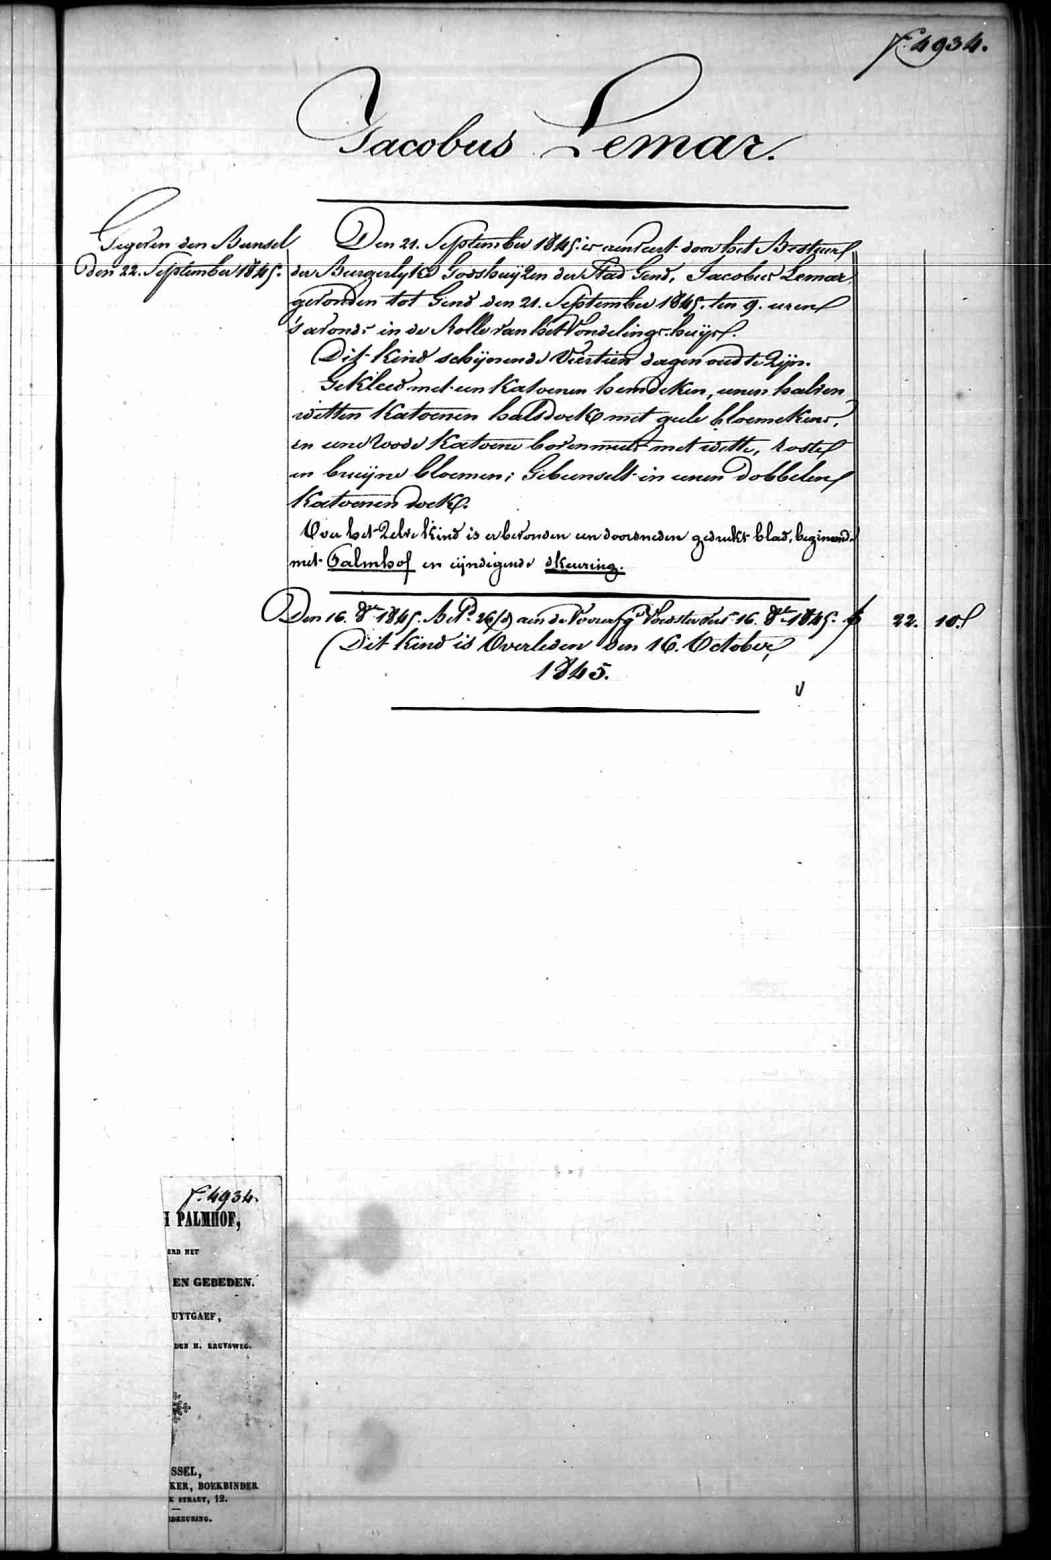 f.° 4934.
Jacobus Lemar.
Gegeven den Bunsel
den 22. September 1845.
Den 21. September 1845. is aenveert door het Bestuur
der Burgerlyke Godshuijzen der Stad Gend, Jacobus Lemar,
gevonden tot Gend den 21. September 1845. ten 9. uren
's avonds in de Rolle van het Vondelingshuijs.
Dit kind schijnende Viertien dagen oud te Zijn.
Gekleed met een Katoenen hemdeken, eenen halven
witten Katoenen halsdoek met gele bloemekens,
en eene Roode Katoene bovenmuts met witte, roste
en bruijne bloemen; Gebunselt in eenen dobbelen
Katoenen doek.
Over het Zelve kind is er bevonden een doorsneden gedrukt blad, beginnende
met Palmhof en eijndigende dkeuring.
Den 16. 8.er 1845. Bet.d 26/d aen de Voedster tot 16. 8.er 1845. f 22. 10.
Dit kind is Overleden den 16. October,
1845.
f.° 4934.
H PALMHOF,
ERD MET
EN GEBEDEN.
UYTGAEF,
DEN H. KRUYSWEG.
SSEL,
KER, BOEKBINDER
K STRAET, 12.
DKEURING.